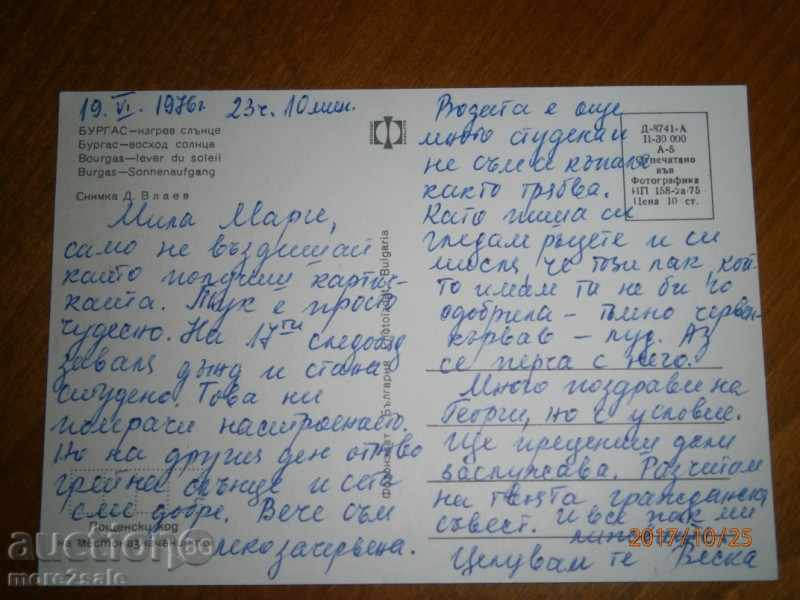 19.VI.1976г 23ч. 10мин.
БУРГАС—изгрев слънце
Бургас—восход солнца
Bourgas—lever du soleil
Burgas—Sonnenaufgang
Снимка Д. Влаев
Мила Марге,
само не въздишай
като получиш картич-
ката. Тук е просто
чудесно. На 17ти следобяд
заваля дъжд и стана
студено. Това ни
помрачи настроението.
Но на другия ден отново
грейна слънце и сега
сме добре. Вече съм
леко зачервена.
Пощенски код
местоназначението
Фотоиздат България Bulgaria
Водата е още
много студена и
не съм се къпала
както трябва.
Като пиша си
гледам ръцете и си
мисля, че този лак, кой-
то имам ти не би го
одобрила – тъмно червен-
кървав – луд. Аз
се перча с него.
Много поздрави на
Георги, но с условие.
Ще прецениш дали
заслужава. Разчитам
на твоята гражданска
съвест. И все пак ми
Целувам те Веска
Д-8741-А
II-30 000
А-5
Отпечатано
във
Фотографика
ИП 158-Уа-75
Цена 10 ст.
2017/10/25
аукцион BG
more2sale